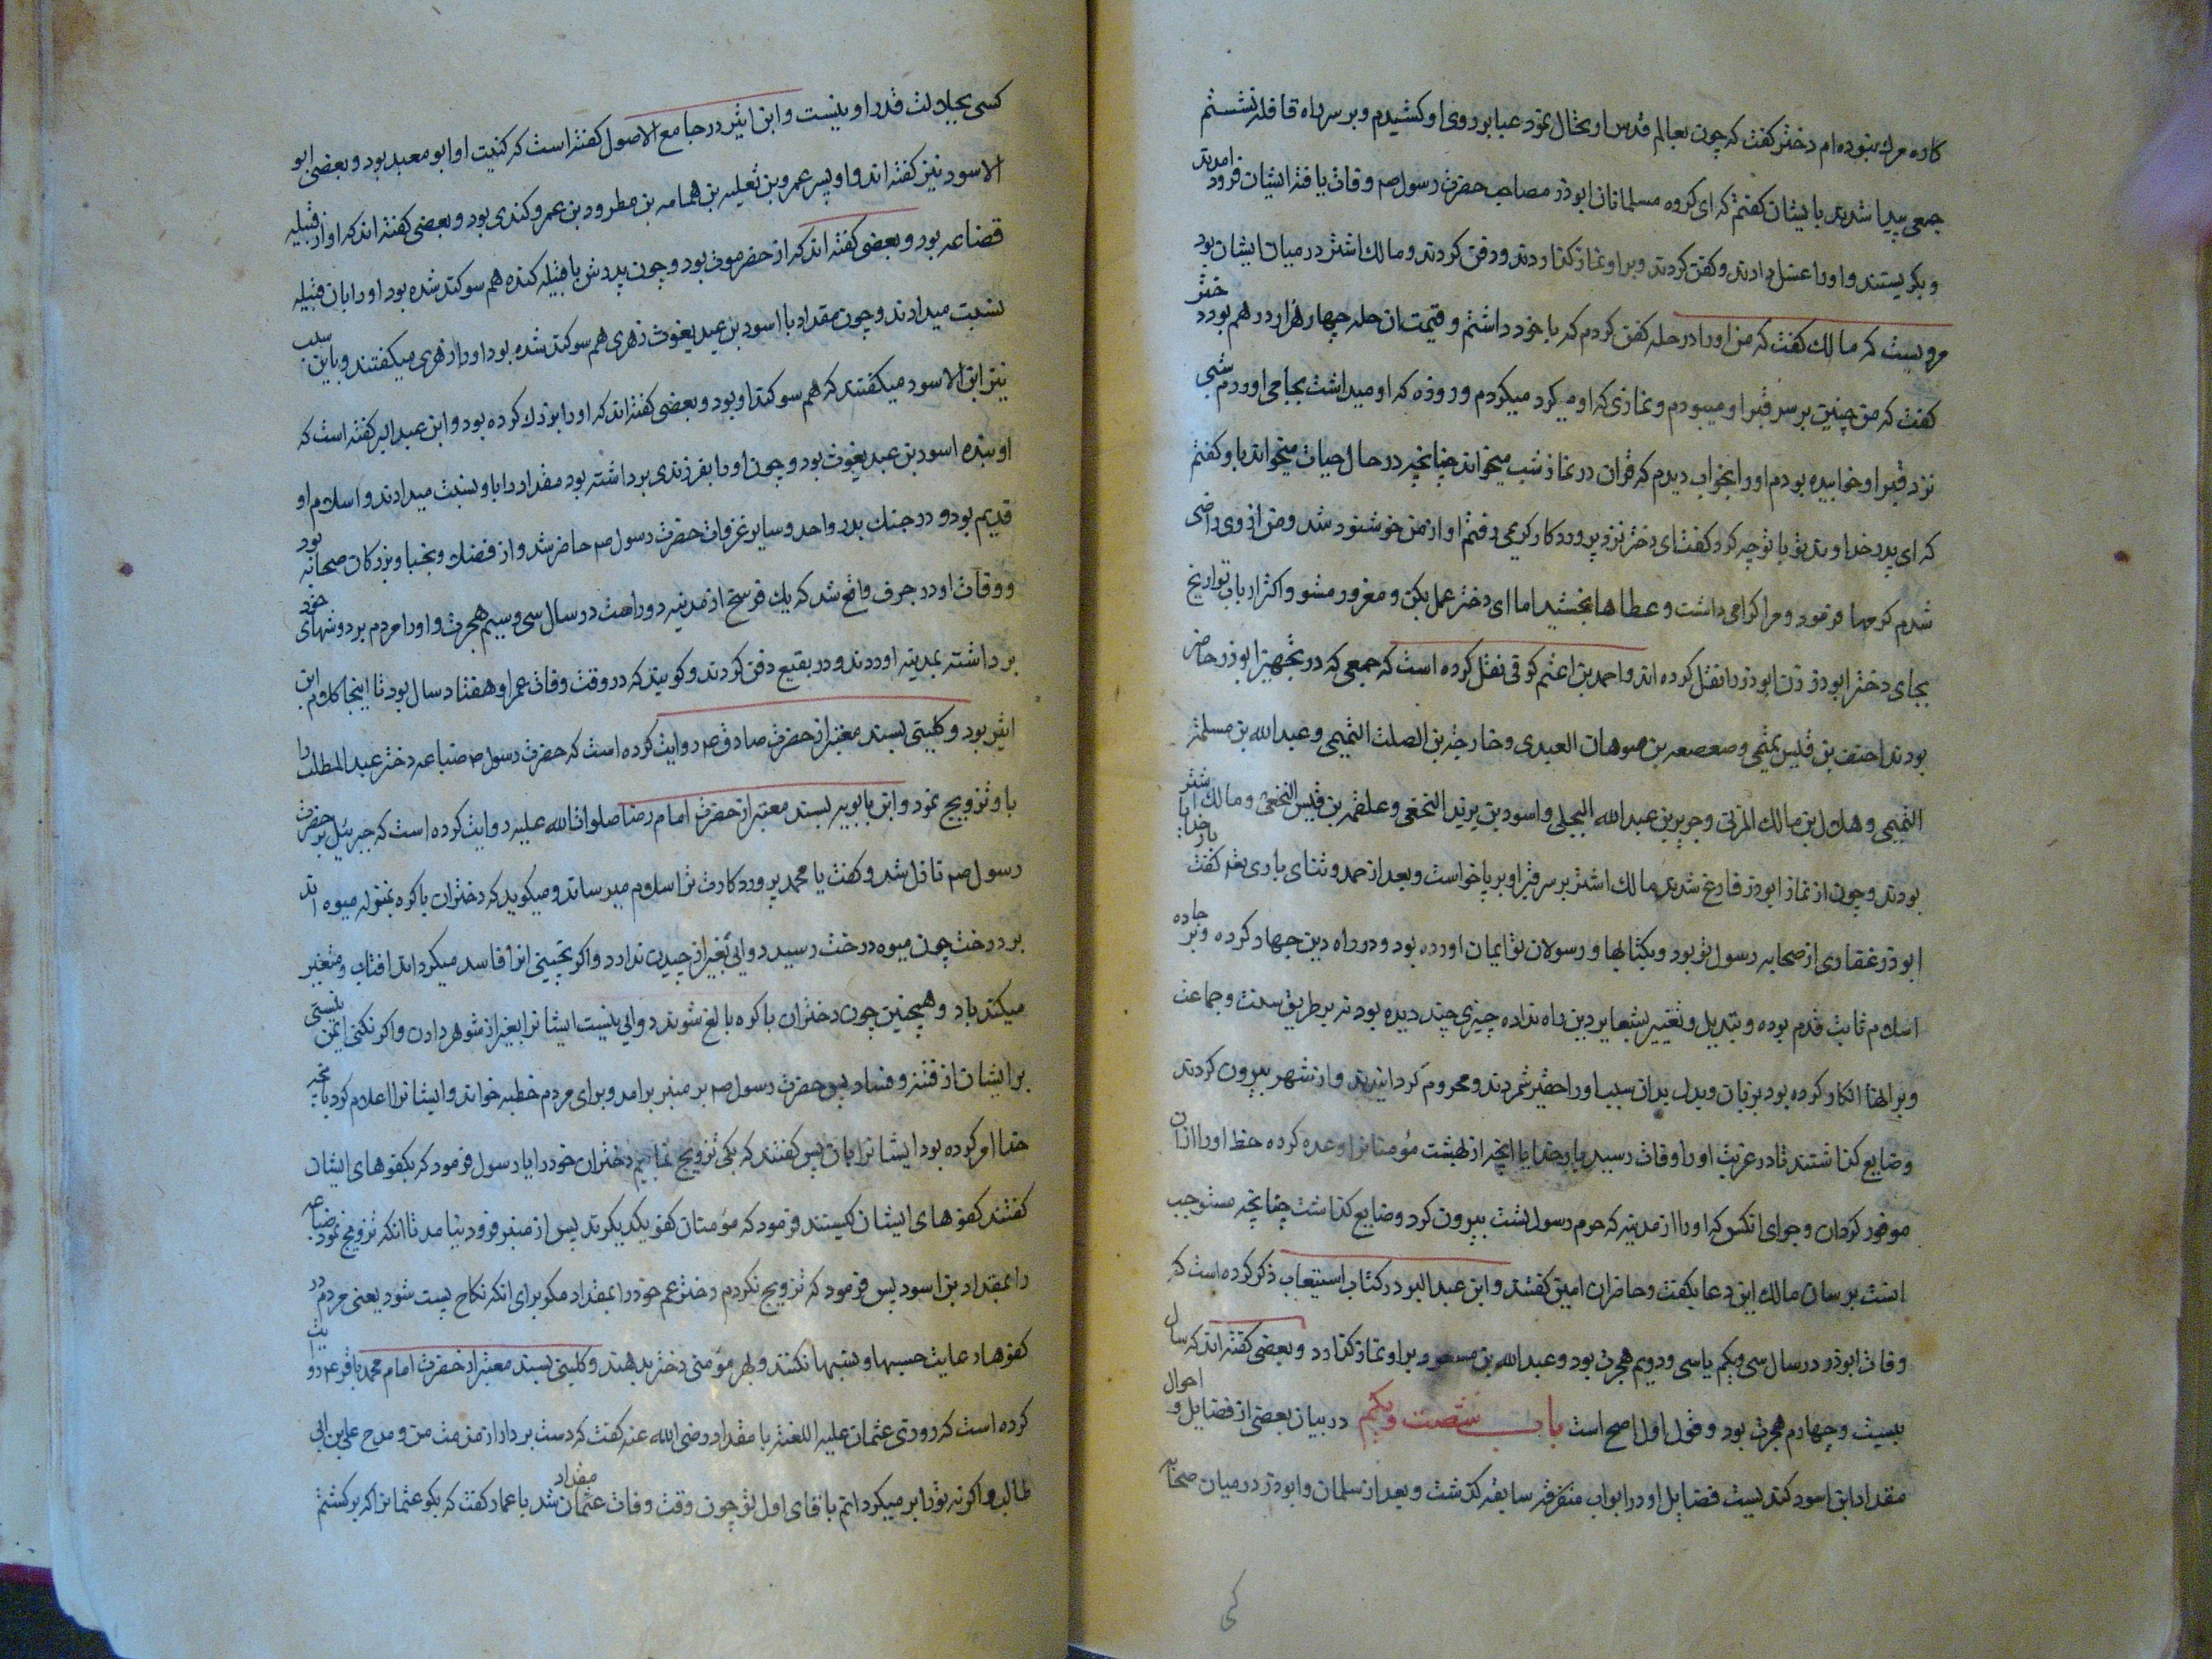 کاره مرگ نبوده‌ام دختر گفت که چون بعالم قدس ارتحال نمود عبا بر روی او کشیدم و بر سر راه قافله نشستم
جمعی پیدا شدند بایشان گفتم که ای گروه مسلمانان ابوذر مصاحب حضرت رسول صم وفات یافته ایشان فرود امدند
و بگریستند و او را غسل دادند و کفن کردند و بر او نماز گذاردند و دفن کردند و مالک اشتر در میان ایشان بود
مرویست که مالک گفت که من او را در حله کفن کردم که با خود داشتم و قیمت ان حله چهار هزار درهم بود دختر
گفت که من چنین بر سر قبر او میبودم و نمازی که او میکرد میکردم و روزه که او میداشت بجا می اوردم شبی
نزد قبر او خوابیده بودم او را بخواب دیدم که قران در نماز شب میخواند چنانچه در حال حیات میخواند باو گفتم
که ای پدر خداوند تو با تو چه کرد گفت ای دختر نزد پروردکار کریمی رفتم او از من خوشنود شد و من از وی راضی
شدم کرمها فرمود و مرا گرامی داشت و عطاها بخشید اما ای دختر عمل بکن و مغرور مشو و اکثر ارباب تواریخ
بجای دختر ابوذر زن ابوذر را نقل کرده اند و احمد بن اعثم کوفی نقل کرده است که جمعی که در تجهیز ابوذر حاضر
بودند احنف بن قیس تمیمی و صعصعه بن صوهان العبدی و خارجة بن الصلت التمیمی و عبد الله بن مسلمة
التمیمی و هلال بن مالک المزنی و جریر بن عبد الله البجلی و اسود بن یزید النخعی و علقمه بن قیس النخعی و مالک اشتر
بودند و چون از نماز ابوذر فارغ شدند مالک اشتر بر سر قبر او بر پا خواست و بعد از حمد و ثنای باری تعه گفت بار خدایا
ابوذر غفاری از صحابه رسول تو بود و بکتابها و رسولان تو ایمان اورده بود و در راه دین جهاد کرده و بر جاده
اسلام ثابت قدم بوده و تبدیل و تغییر بشعایر دین راه نداده چیزی چند دیده بود نه بر طریق سنت و جماعت
و بر انها انکار کرده بود بزبان و بدل بدان سبب او را حقیر شمردند و محروم گردانیدند و از شهر بیرون کردند
و ضایع گذاشتند تا در غربت او را وفات رسید بار خدایا انچه از بهشت مؤمنانرا وعده کرده حظ او را از ان
موفور گردان و جزای انکس که او را از مدینه که حرم رسول تست بیرون کرد و ضایع گذاشت چنانچه مستوجب
انست برسان مالک این دعا بگفت و حاضران امین گفتند و ابن عبد البر در کتاب استیعاب ذکر کرده است که
وفات ابوذر در سال سی و یکم یا سی و دویم هجرت بود و عبد الله بن مسعود بر او نماز گذارد و بعضی گفته اند که سال
بیست و چهارم هجرت بود و قول اول اصح است باب شصت و یکم در بیان بعضی از فضایل و احوال
مقداد ابن اسود کندیست فضایل او در ابواب متفرقه سابقه گذشت و بعد از سلمان و ابوذر در میان صحابه
کسی
کسی بجلالت قدر او نیست و ابن اثیر در جامع الاصول گفته است که کنیت او ابو معبد بود و بعضی ابو
الاسود نیز گفته اند و او پسر عمرو بن ثعلبه بن همامه بن مطرود بن عمرو کندی بود و بعضی گفته اند که او از قبیله
قضاعه بود و بعضی گفته اند که از حضرموت بود و چون پدرش با قبیله کنده هم سوکند شده بود او را بان قبیله
نسبت میدادند و چون مقداد با اسود بن عبد یغوث زهری هم سوکند شده بود او را زهری میگفتند و باین سبب
نیز ابن الاسود میگفتند که هم سوکند او بود و بعضی گفته اند که او را بزرگ کرده بود و ابن عبد البر گفته است که
او بنده اسود بن عبد یغوث بود و چون او را بفرزندی برداشته بود مقداد را باو نسبت میدادند و اسلام او
قدیم بود و در جنک بدر و احد و سایر غزوات حضرت رسول صم حاضر شد و از فضلا و نجبا و بزرکان صحابه بود
و وفات او در جرف واقع شد که یک فرسخ از مدینه دور است در سال سی و سیم هجرت و او را مردم بر دوشهای خود
برداشته بمدینه اوردند و در بقیع دفن کردند و گویند که در وقت وفات عمر او هفتاد سال بود تا اینجا کلام ابن
اثیر بود و کلینی بسند معتبر از حضرت صادق صم روایت کرده است که حضرت رسول صم ضباعه دختر عبد المطلب را
باو تزویج نمود و ابن بابویه بسند معتبر از حضرت امام رضا صلوات الله علیه روایت کرده است که جبرئیل بر حضرت
رسول صم نازل شد و گفت یا محمد پروردکارت ترا سلام میرساند و میگوید که دختران باکره بمنزله میوه اند
بر درخت چون میوه درخت رسید دوایی بغیر از چیدن ندارد و اگر نچینی انرا فاسد میگرداند افتاب و متغیر
میکند باد و همچنین چون دختران باکره بالغ شوند دوایی نیست ایشانرا بغیر از شوهر دادن و اگر نکنی ایمن نیستی
بر ایشان از فتنه و فساد پس حضرت رسول صم بر منبر برامد و برای مردم خطبه خواند و ایشانرا اعلام کرد بانچه
خدا امر کرده بود ایشانرا بان پس گفتند که بکی تزویج نماییم دختران خود را یا رسول فرمود که بکفوهای ایشان
گفتند کفوهای ایشان کیستند فرمود که مؤمنان کفو یکدیکرند پس از منبر فرود نیامد تا انکه تزویج نمود ضباعه
را بمقداد بن اسود پس فرمود که تزویج نکردم دختر عم خود را بمقداد مگر برای انکه نکاح پست شود یعنی مردم در
کفوها رعایت حسبها و نسبها نکنند و بهر مؤمنی دختر بدهند و کلینی بسند معتبر از حضرت امام محمد باقر عم روایت
کرده است که روزی عثمان علیه اللعنة با مقداد رضی الله عنه گفت که دست بردار از مذمت من و مدح علی بن ابی
طالب و اگر نه ترا بر میگردانم باقای اول تو چون وقت وفات مقداد شد با عمار گفت که بگو عثمانرا که برگشتم